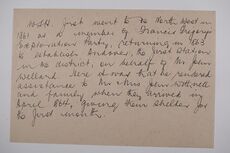 W.S.H. first went to the North West in
1861 as a member of Francis Gregory's
Exploration Party, returning in 1863
to establish Andover, the first station
in the district, on behalf of Mr John
Wellard. Here it was that he rendered
assistance to Mr & Mrs John Withnell
and family when they arrived in
April 1864, giving them shelter for
the first month.